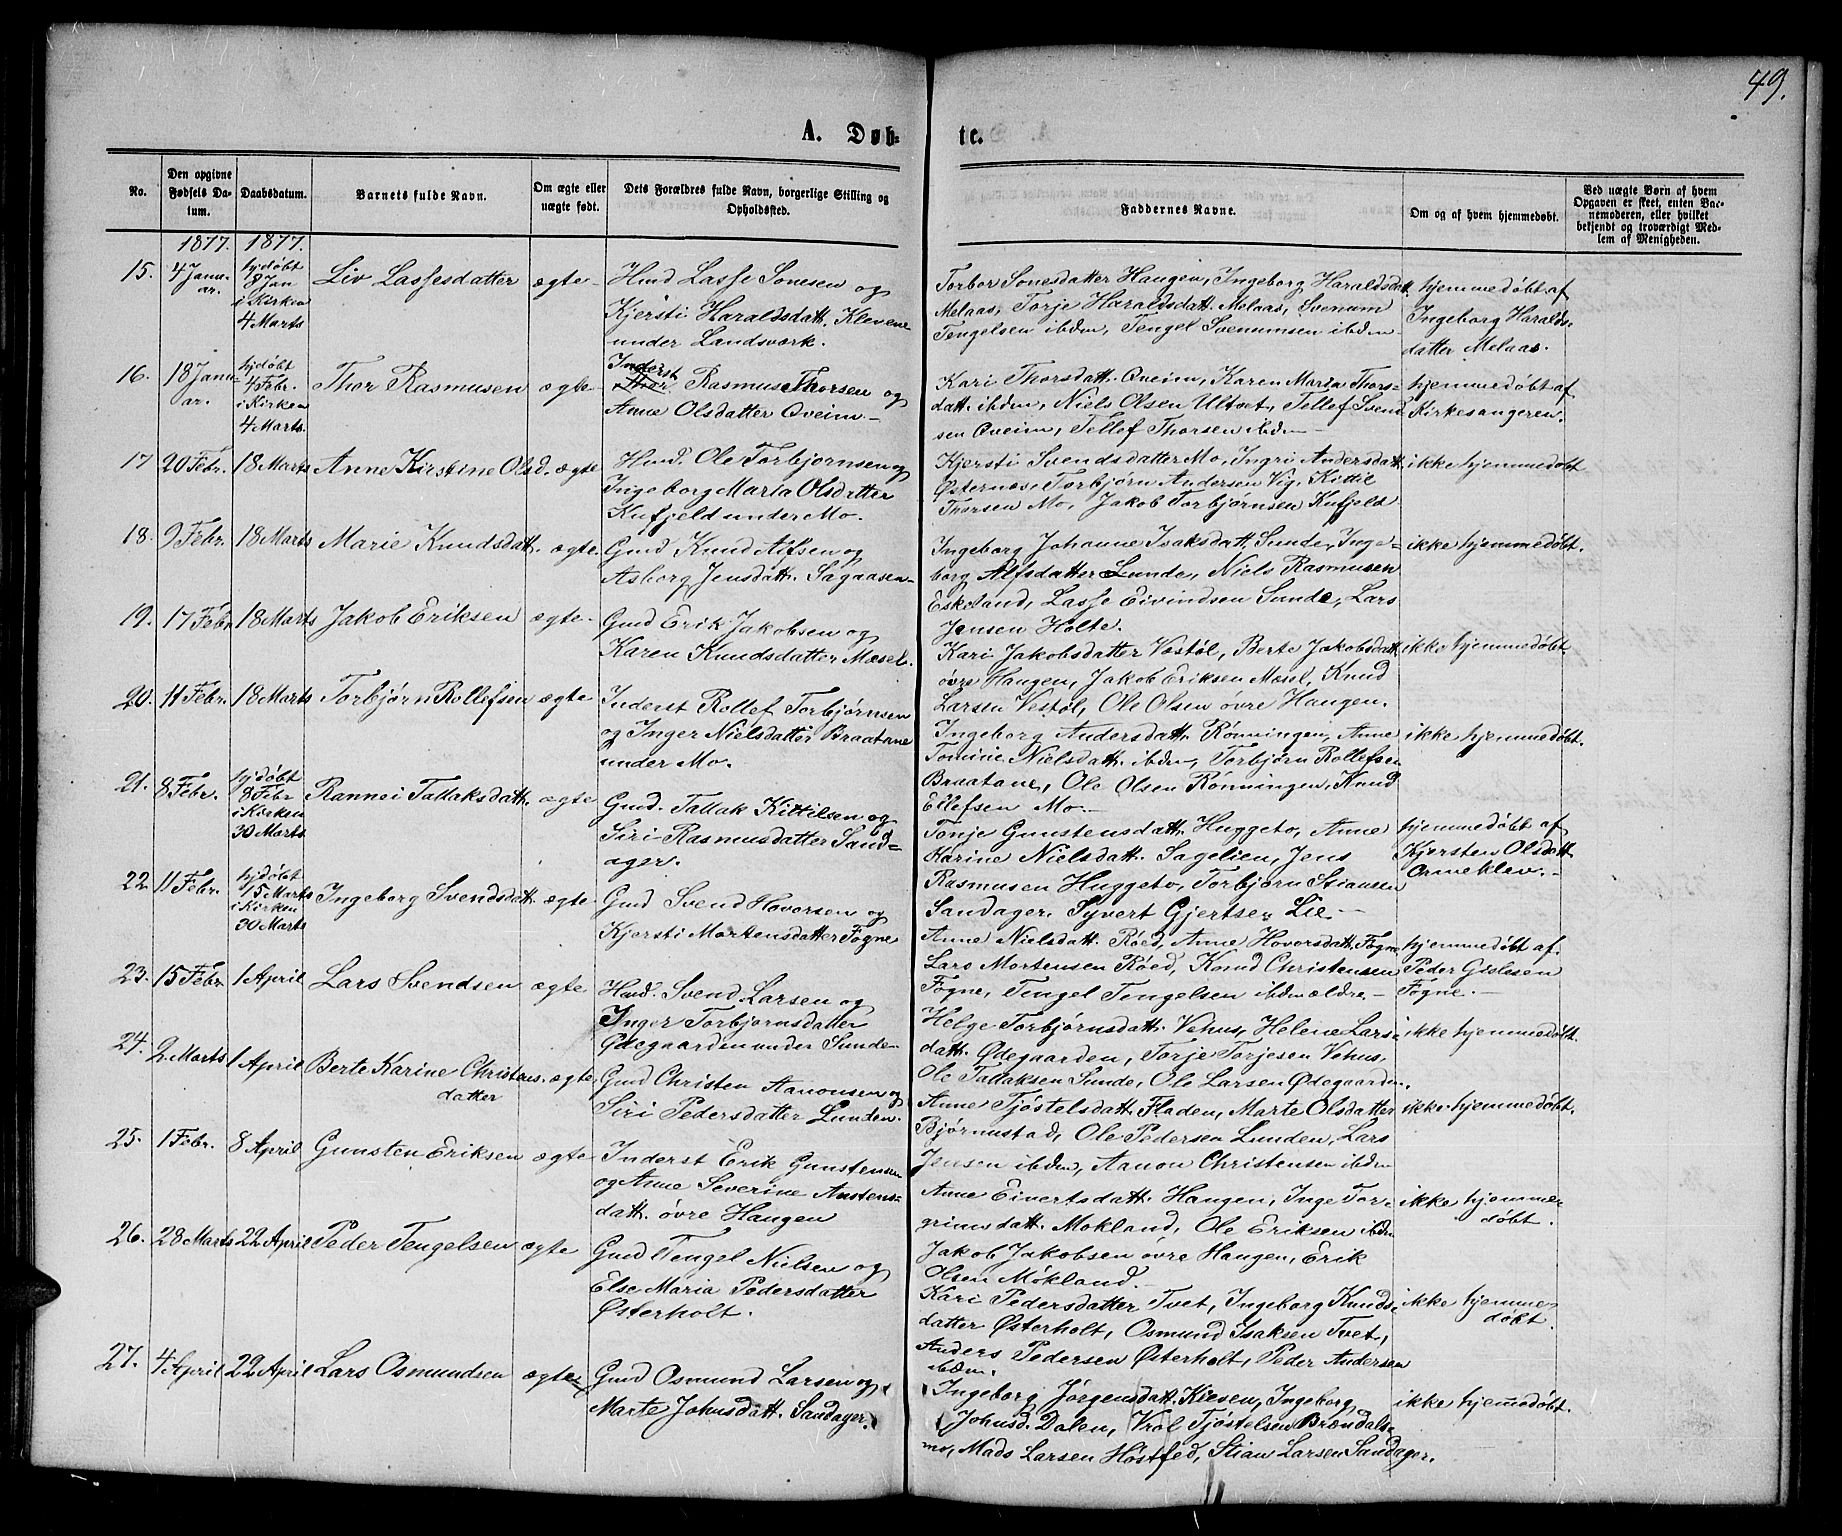 49.
A. Døb-
te.
No.
Den opgivne Fødsels Da-
tum.
Daabsdatum.
Barnets fulde Navn.
Om ægte eller
uægte født.
Dets Forældres fulde Navn, borgerlige Stilling og
Opholdssted.
Faddernes Navne.
Om og af hvem hjemmedøbt.
Ved uægte Børn af hvem
Opgaven er skeet, enten Bar-
nemoderen, eller hvilket
bekjendt og troværdigt Med-
lem af Menigheden.
1877. 1877.
15. 4 Janu-
ar.
hjdøbt
8 Jan
i Kirken
4 Marts
Liv Lassesdatter
ægte
Hmd Lasse Sonesen og
Kjersti Haraldsdatt. Klevene
under Landsværk.
Torbor Sonesdatter Haugen, Ingeborg Haraldsdatt.
Melaas, Torje Haraldsdatt. Melaas, Svenum
Tengelsen ibden, Tengel Svenumsen ibden
hjemmedøbt af
Ingeborg Haralds-
datter Melaas.
16. 18 Janu-
ar.
hjdøbt
4 Febr.
i Kirken
4 Marts.
Thor Rasmusen
ægte
Inderst
Rasmus Thorsen og
Anne Olsdatter Qveim
Kari Thorsdatt. Qveim, Karen Maria Thors-
datt. ibden, Niels Olsen Ultvet, Tellef Svend
sen Qveim, Tellef Thorsen ibden
hjemmedøbt af
Kirkesangeren.
17 20 Febr. 18 Marts Anne Kirstine Olsd. ægte
Hmd. Ole Torbjørnsen og
Ingeborg Maria Olsdatter
Kufjeld under Mo.
Kjersti Svendsdatter Mo, Ingri Andersdatt.
Østernes, Torbjørn Andersen Vig, Kittil
Thorsen Mo, Jakob Torbjørnsen Kufjeld
ikke hjemmedøbt
18. 9 Febr. 18 Marts Marie Knudsdatt. ægte.
Gmd Knud Alfsen og
Asborg Jensdatt. Sagaasen
Ingeborg Johanne Isaksdatt. Sunde, Inge-
borg Alfsdatter Lunde, Niels Rasmusen
Eskeland, Lasse Eivindsen Sunde, Lars
Jensen Holte.
ikke hjemmedøbt.
19. 17 Febr 18 Marts Jakob Eriksen ægte
Gmd Erik Jakobsen og
Karen Knudsdatter Mæsel.
Kari Jakobsdatter Vestøl, Berte Jakobsdatt.
øvre Haugen, Jakob Eriksen Mæsel, Knud
Larsen Vestøl, Ole Olsen øvre Haugen.
ikke hjemmedøbt.
20. 11 Febr. 18 Marts Torbjørn Rollefsen ægte
Inderst Rollef Torbjørnsen
og Inger Nielsdatter Braatane
under Mo.
Ingeborg Andersdatt. Rønningen, Anne
Tomine Nielsdatt. ibden, Torbjørn Rollefsen
Braatane, Ole Olsen Rønningen, Knud
Ellefsen Mo.
ikke hjemmedøbt.
21. 8 Febr.
hjdøbt
8 Febr
i Kirken
30 Marts
Rannei Tallaksdatt. ægte
Gmd. Tallak Kittilsen og
Siri Rasmusdatter Sand-
ager.
Tonje Gunstensdatt. Huggeto, Anne
Karine Nielsdatt. Sagelien, Jens
Rasmusen Huggeto, Torbjørn Stiansen
Sandager, Syvert Gjertsen Lie.
hjemmedøbt af
Kjersten Olsdatt.
Ormeklev.
22. 11 Febr.
hjdøbt
15 Marts
i Kirken
30 Marts
Ingeborg Svendsdatt. ægte
Gmd Svend Hovorsen og
Kjersti Mortensdatter Fogne
Anne Nielsdatt. Røed, Anne Hovorsdatt. Fogne
Lars Mortensen Røed, Knud Christensen
Fogne, Tengel Tengelsen ibden ældre,
hjemmedøbt af
Peder Gislesen
Fogne.
23. 15 Febr 1 April Lars Svendsen ægte
Hmd. Svend Larsen og
Inger Torbjørnsdatter
Ødegaarden under Sunde
Helge Torbjørnsdatt. Vehus, Helene Lars-
datt. Ødegaarden, Torje Torjesen Vehus,
Ole Tallaksen Sunde, Ole Larsen Ødegaarden.
ikke hjemmedøbt.
24. 2 Marts 1 April Berte Karine Christens- ægte
datter
Gmd Christen Aanonsen og
Siri Pedersdatter Lunden.
Anne Tjøstelsdatt. Fladen, Marte Olsdatter
Bjørnustad, Ole Pedersen Lunden, Lars
Jensen ibden, Aanon Christensen ibden
ikke hjemmedøbt.
25. 1 Febr. 8 April Gunsten Eriksen ægte
Inderst Erik Gunstensen
og Anne Severine Austens-
datt. øvre Haugen
Anne Eivertsdatt. Haugen, Inge Tor-
grimsdatt. Mokland, Ole Eriksen ibden
Jakob Jakobsen øvre Haugen, Erik
Olsen Møkland.
ikke hjemme-
døbt.
26. 28 Marts 22 April Peder Tengelsen ægte
Gmd Tengel Nielsen og
Else Maria Pedersdatter
Østerholt.
Kari Pedersdatter Tvet, Ingeborg Knuds-
datter Østerholt, Osmund Isaksen Tvet,
Anders Pedersen Østerholt, Peder Andersen
ibden.
ikke hjemme-
døbt.
27. 4 April 22 April Lars Osmundsen ægte
Gmd Osmund Larsen og
Marte Johnsdatt. Sandager.
Ingeborg Jørgensdatt. Kleven, Ingeborg
Johnsd. Dalen, Vrol Tjøstelsen Brændals-
mo, Mads Larsen Høstfed, Stian Larsen Sandager.
ikke hjemmedøbt.